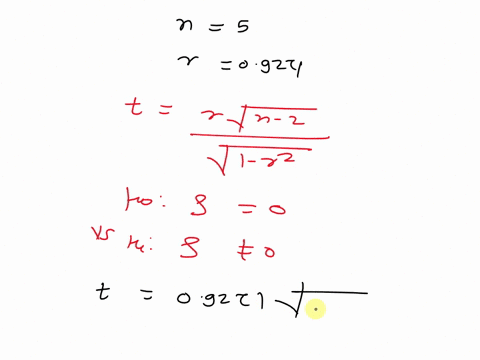 n = 5
r = 0.9271
t = r√(n-2) / √(1-r²)
H₀: ρ = 0
vs H₁: ρ ≠ 0
t = 0.9271 √